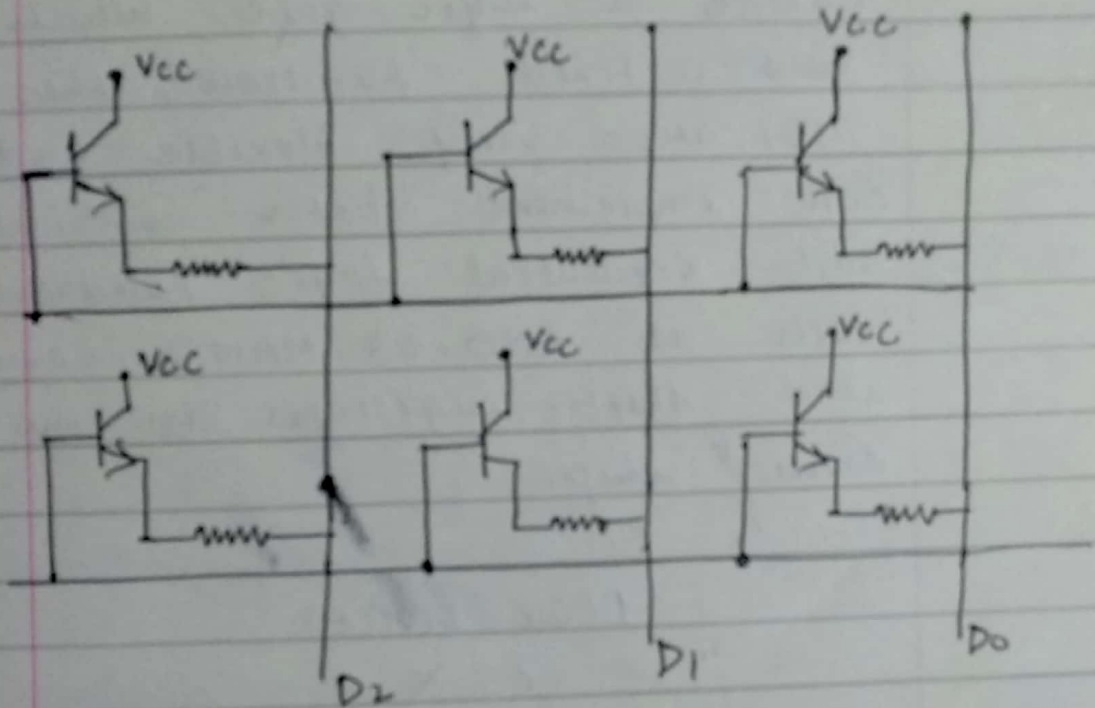 Vcc
Vcc
Vcc
Vcc
Vcc
Vcc
D2
D1
D0